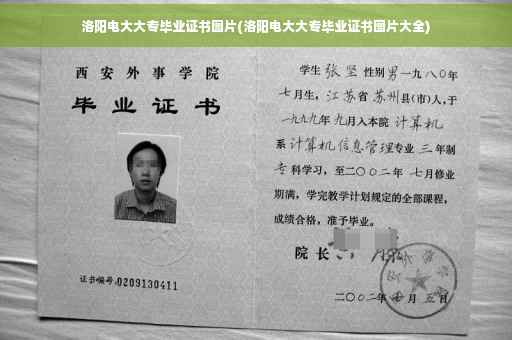 洛阳电大大专毕业证书图片(洛阳电大大专毕业证书图片大全)
西安外事学院
毕业证书
证书编号:0209130411
学生 张坚 性别男一九八〇年
七月生，江苏省苏州县(市)人,于
一九九九年九月入本院 计算机
系计算机信息管理专业 三 年制
专科学习，至二〇〇二年 七月修业
期满，学完教学计划规定的全部课程，
成绩合格，准予毕业。
院长
二〇〇二年 七 月 五 日